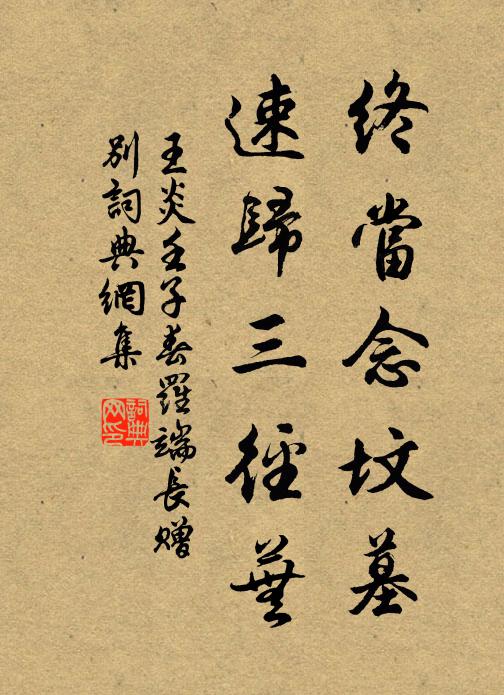 終當念坟墓
速歸三徑蕪
王炎壬子春羅端長贈
别詞典網集
詞典网印